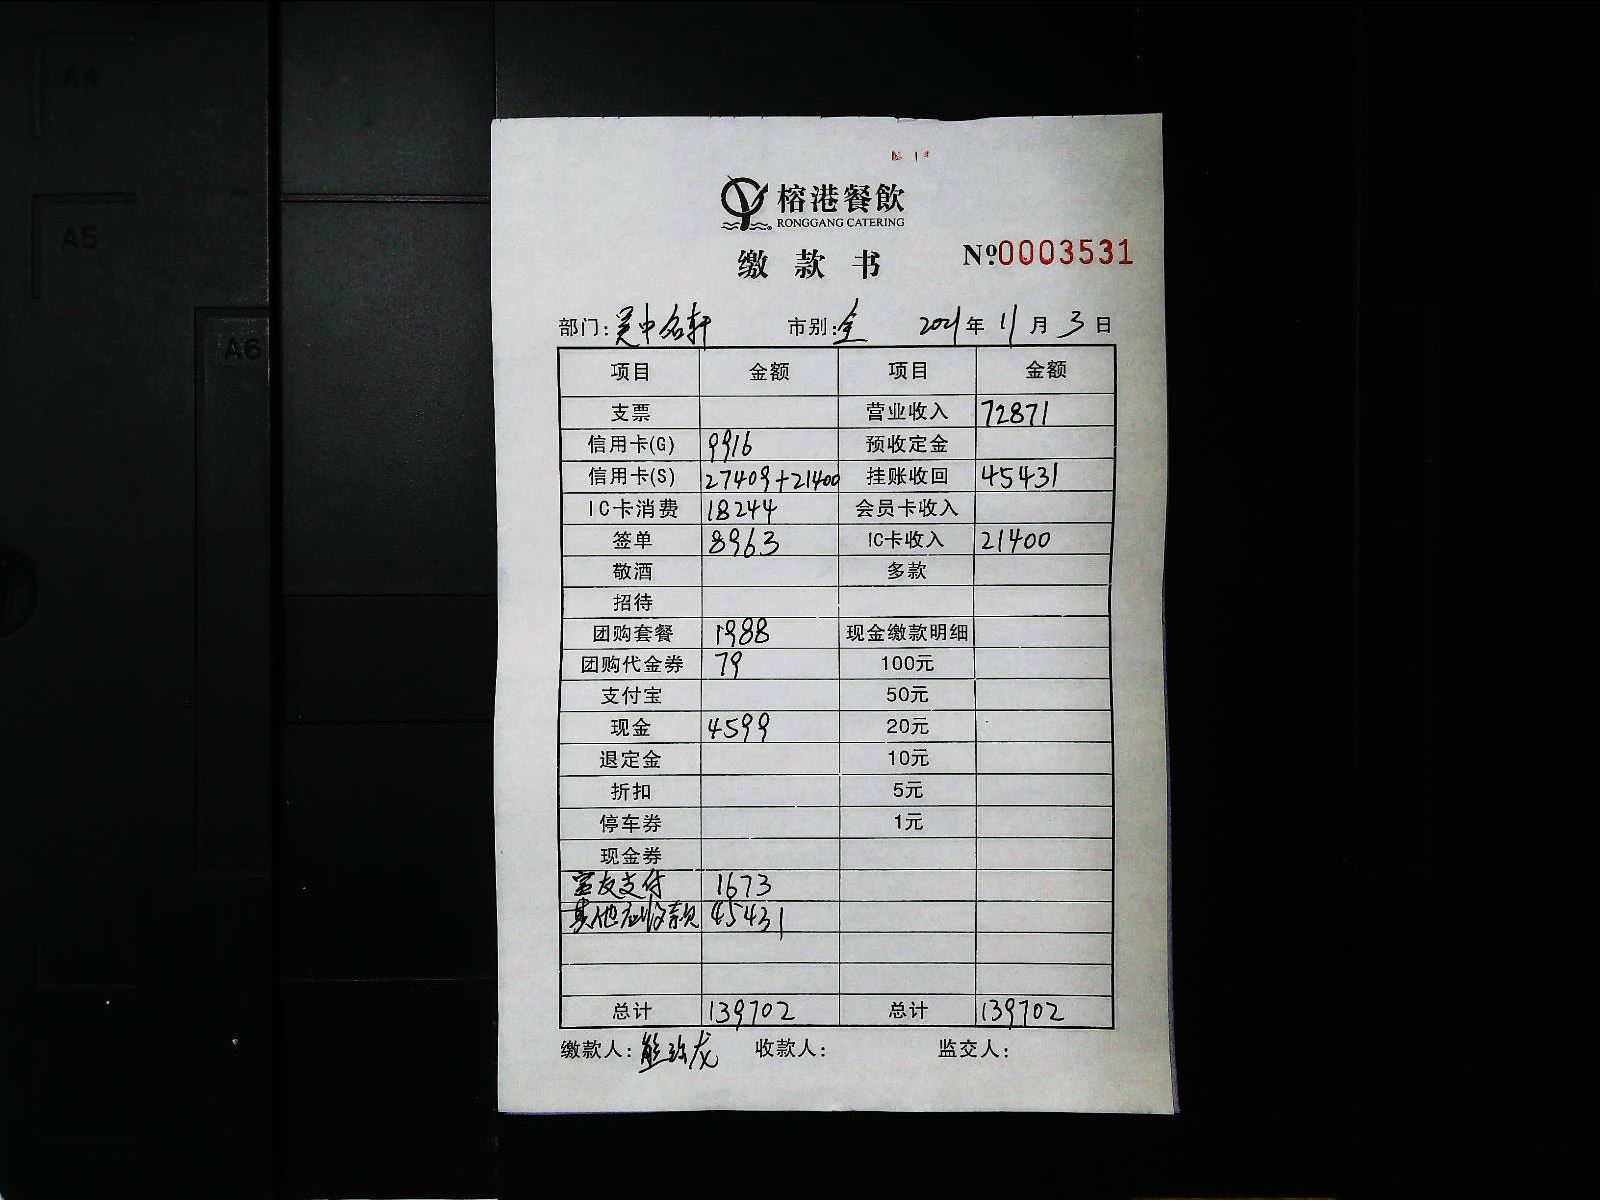 A4
A5
A6
榕港餐飲
RONGGANG CATERING
缴款书 №0003531
部门: 吴中名轩 市别: 全 2021年11月3日
项目 金额 项目 金额
支票 营业收入 72871
信用卡(G) 9916 预收定金
信用卡(S) 27409+21400 挂账收回 45431
IC卡消费 18244 会员卡收入
签单 8963 IC卡收入 21400
敬酒 多款
招待
团购套餐 1988 现金缴款明细
团购代金券 79 100元
支付宝 50元
现金 4599 20元
退定金 10元
折扣 5元
停车券 1元
现金券
支付 1673
其他应收款 45431
总计 139702 总计 139702
缴款人: 熊 龙 收款人: 监交人: